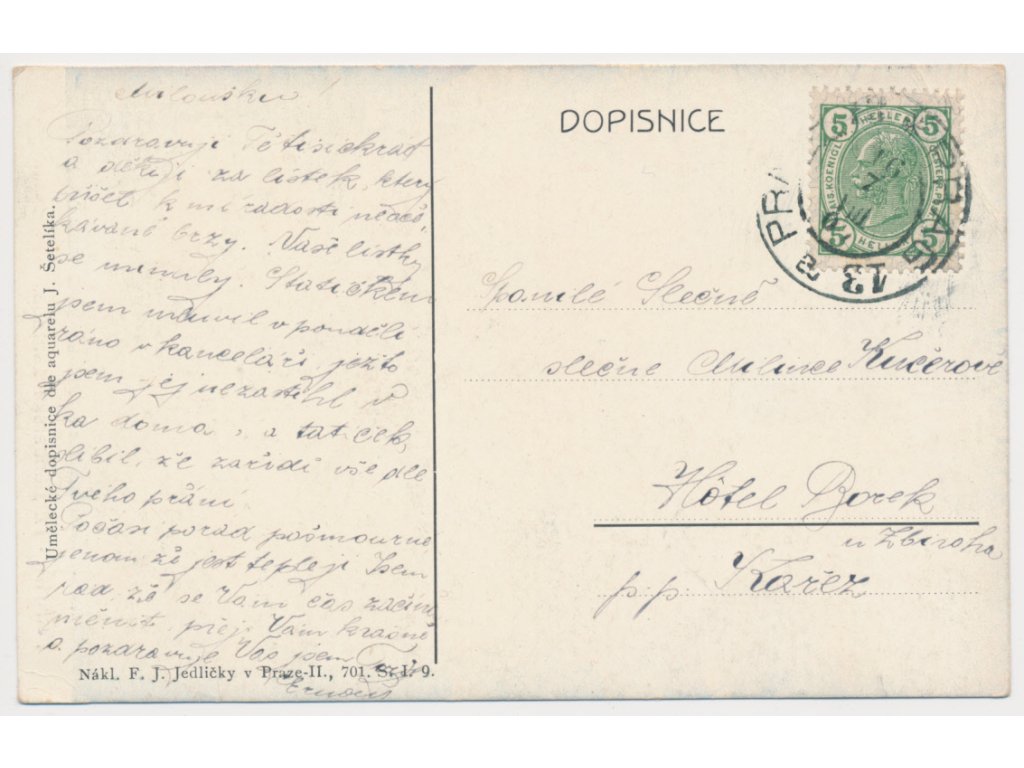 Miloušku!
Pozdravuji Tě tisíckrát
a děkuji za lístek, který
přišel k mé radosti neoče-
kávaně brzy. Vaše lístky
se minuly. S tatíčkem
jsem mluvil v pondělí
ráno v kanceláři ježto
jsem jej nezastihl v
doma, a tatíček
slíbil, že zařídí vše dle
Tvého přání.
Počasí pořád pošmourné
jenom že jest tepleji. Jsem
rád, že se Vám čas začíná
měnit, přeji Vám krásné
a pozdravuje Vás jsem
Umělecké dopisnice dle aquarelu J. Šetelíka.
Nákl. F. J. Jedličky v Praze-II., 701. S. I. 9.
DOPISNICE
HELLER
5 5
5 5
PRA
PRAG
13
Spanilé Slečně
slečně Milunce Kučerově
Hôtel Borek
u Zbiroha
p. p. Kařez